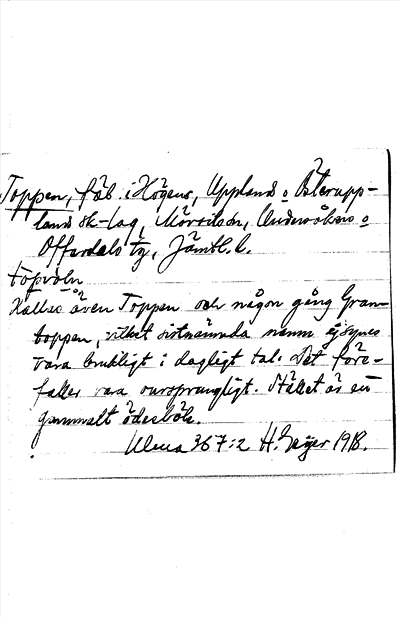 Toppen, fäb. i Högens, Uppland o Österupp-
lands sk-lag, Mörsils sn, Undersåkers o
Offerdals tg, Jämtl. l.
Kallas även Toppen och någon gång Gran-
toppen, vilket sistnämnda namn ej synes
vara brukligt i dagligt tal. Det före-
faller vara oursprungligt. Stället är ett
gammalt ödesböle.
Ulma 367:2 H. Geijer 1918.